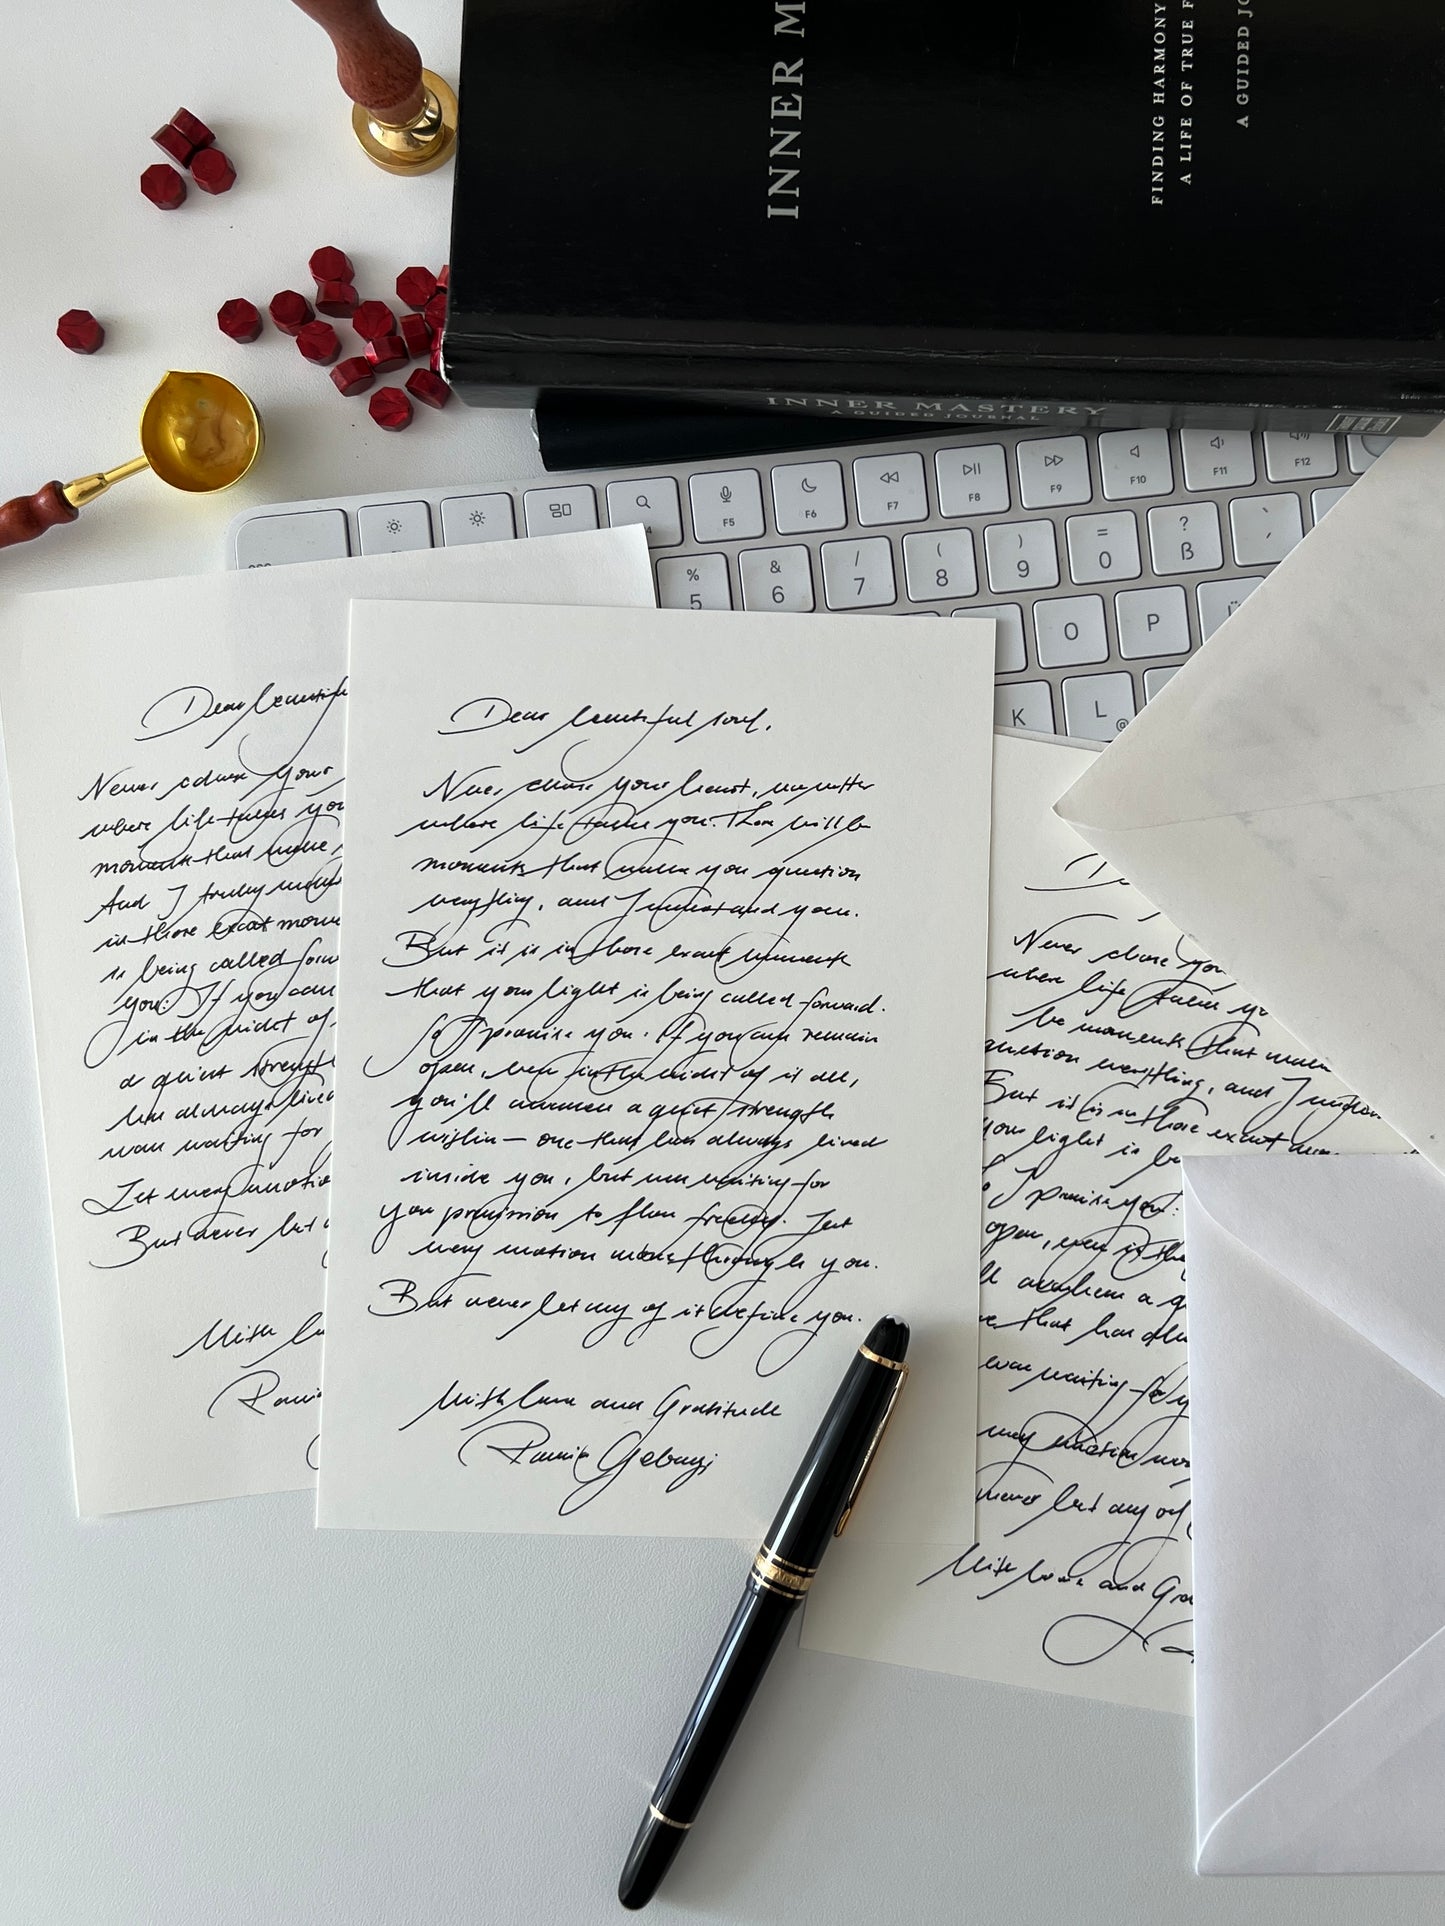 INNER M
FINDING HARMONY
A LIFE OF TRUE F
A GUIDED JO
INNER MASTERY
A GUIDED JOURNAL
F5 F6 F7 F8 F9 F10 F11 F12
% & / ( ) = ?
5 6 7 8 9 0 ß
O P Ü
K L @
Dear beautiful
Never close your
where life takes you
moments that make
And I truly
in those exact
is being called
you. If you can
in the midst of
a quiet strength
has always lived
was waiting for
Let every emotion
But never let
With
Dear beautiful soul,
Never close your heart, no matter
where life takes you. There will be
moments that make you question
everything, and I understand you.
But it is in those exact moments
that your light is being called forward.
I promise you. If you can remain
open, even in the midst of it all,
you'll awaken a quiet strength
within — one that has always lived
inside you, but was waiting for
your permission to flow freely. Let
every emotion move through you.
But never let any of it define you.
With love and Gratitude
Never close you
where life takes yo
be moments that make
question everything, and I
But it is in those exact
your light is be
I promise you:
open, even in the
awaken a q
that has
was waiting for y
every emotion
never let any of
With love and Gra